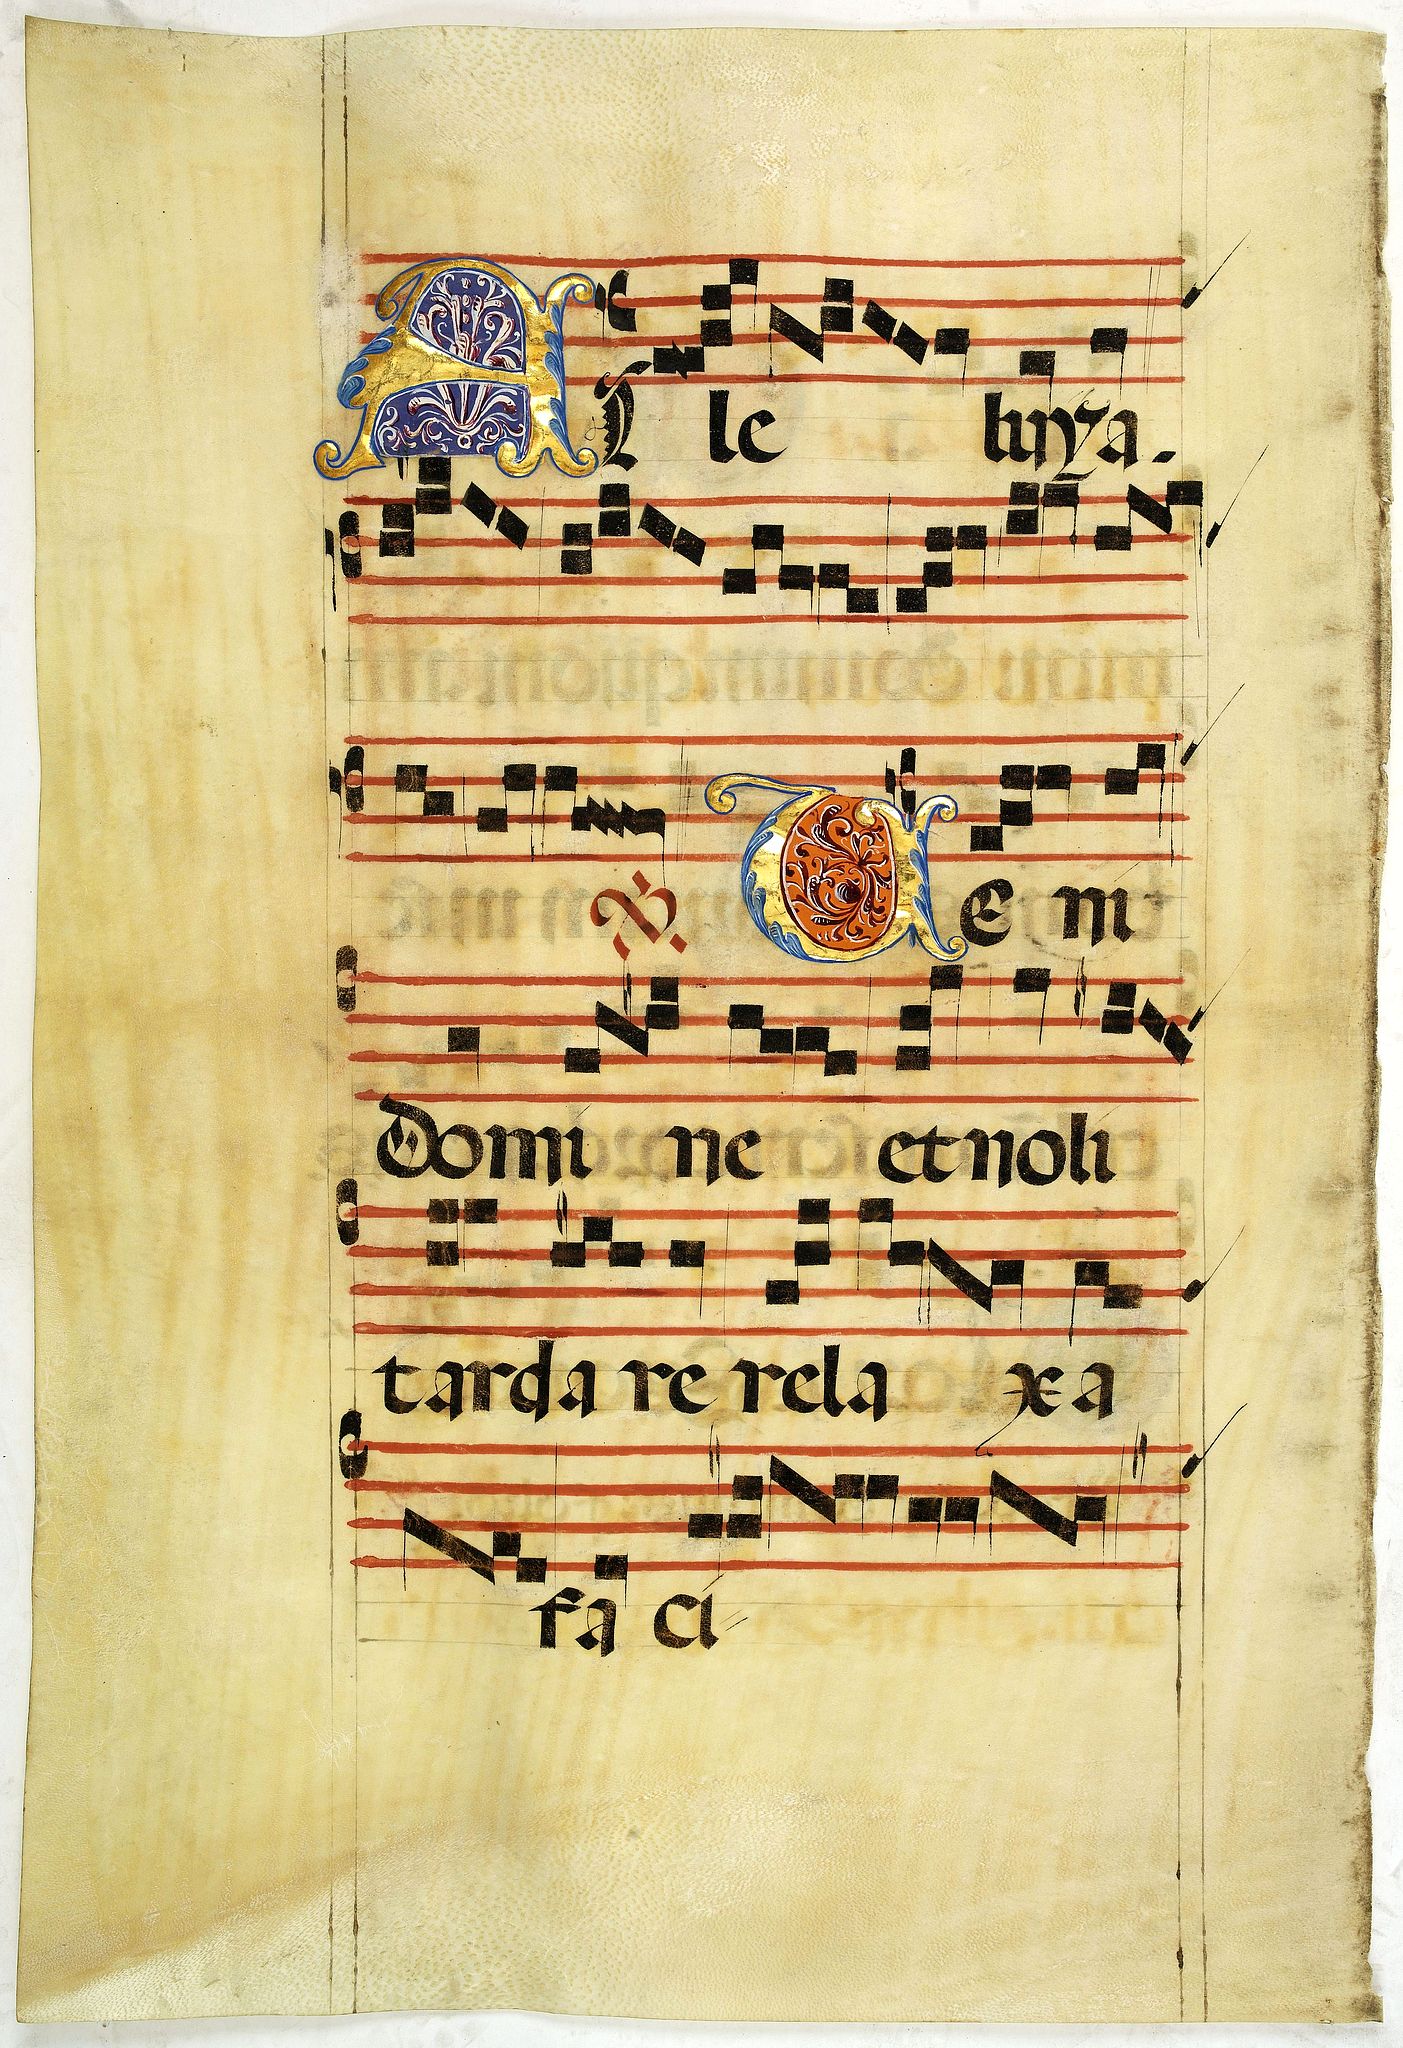 Al le luya.
℣ Ve ni
domi ne et noli
tarda re rela xa
fa ci